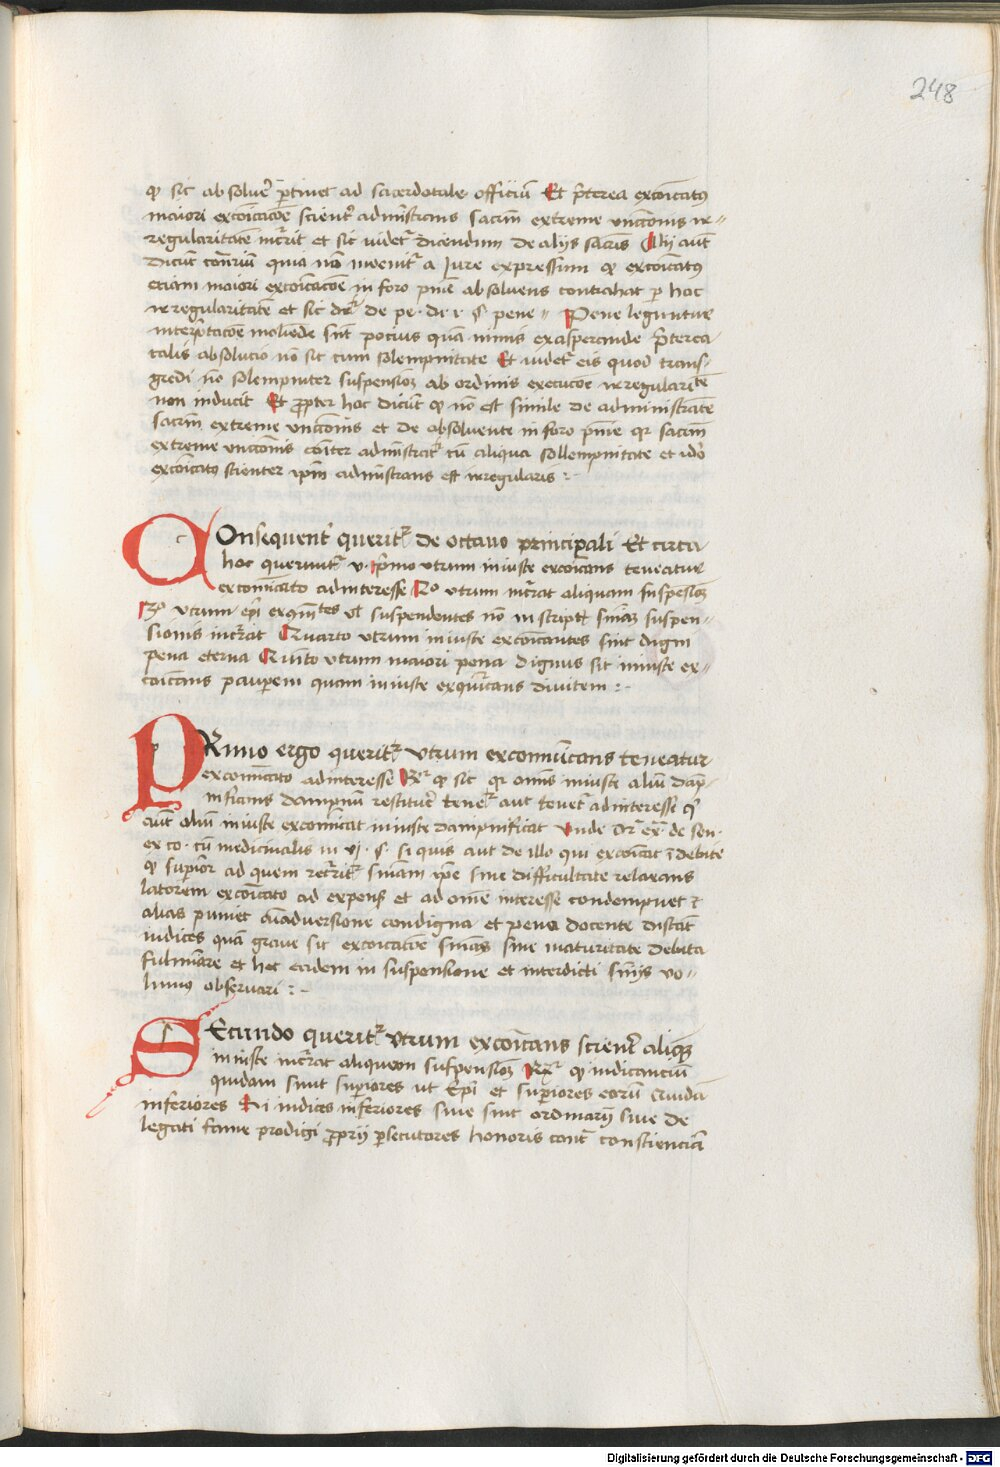 248
qꝫ sic absoluẽ ꝑtinet ad sacerdotale officiũ Et p̃terea excõicatꝰ
maiori excõicacõe scient̾ adm̃strans sacr̃m extreme vnctionis ir-
regularitatẽ incurrit et sic videt̾ dicendum de alijs sacr̃is Alij aũt
dicũt cont̃riũ quia nõ inuenit̾ a Jure expressum qꝫ excõicatꝰ
etiam maiori excõicacõe in foro pñie absoluens contrahat ꝑ hoc
irregularitatẽ et sic dr̃ de pe. di. i. §. pene Pene leguntur
interp̃tacõe moliende sũt pocius quã nimis exasperande p̃terea
talis absolucio nõ fit cum solempnitate Et videt̾ eis quod trans-
gredi nõ solempniter suspensioẽ ab ordinis execucõe irregularitẽ
non inducit Et ꝓpter hoc dicũt qꝫ nõ est simile de administrante
sacr̃m extreme vnctionis et de absoluente in foro pñie qꝛ sacr̃m
extreme vnctionis cõiter adm̃strat̾ cũ aliqua sollempnitate et idõ
excõicato scienter ip̃m adm̃strans est irregularis :-
COnsequent̾ querit̾ de octauo principali Et circa
hoc querunt̾ v. primo vtrum iniuste excõicans teneatur
excommicato ad interesse 2o vtrum incurrat aliquam suspensioẽ
3o vtrum ep̃i exquntes vl̾ suspendentes nõ in script̾ sñiaꝫ suspen-
sionis incurrãt Quarto vtrum iniuste excõicantes sint digni
pena eterna Quinto vtrum maiori pena dignus sit iniuste ex-
cõicans pauperem quam iniuste excõicans diuitem :-
PRimo ergo querit̾ vtrum excommũicans teneatur
excommicato ad interesse Rꝛ qꝫ sic qꝛ omnis iniuste aliũ dãp-
nificans dampnũ restituẽ tenet̾ aut tenet̾ ad interesse qi
aũt aliũ iniuste excommicat iniuste dampnificat Vnde dr̃ ex̃ de sen.
ex co. cũ medicinalis in vj. §. si quis aut de illo qui excõicat indebite
qꝫ superior ad quem recurrit̾ sñiam ip̃e sine difficultate relaxans
latorem excõicato ad expens̃ et ad omẽ interesse condempnet
alias puniet aĩaduersione condigna et pena docente discãt
iudices quã graue sit excõicatõe sñias sine maturitate debita
fulmĩare et hec eadem in suspensione et interdicti sñijs vo-
lumus obseruari :-
SEcundo querit̾ vtrum excõicans scient̾ aliqẽ
iniuste incurrat aliquam suspensioẽ Rꝛ qꝫ iudicanciũ
quidam sunt superiores ut Ep̃i et superiores eorũ quidã
inferiores Si iudices inferiores siue sint ordinarij siue de
legati fame prodigi ꝓprij ꝑsecutores honoris cont̃ conscienciã
Digitalisierung gefördert durch die Deutsche Forschungsgemeinschaft - DFG